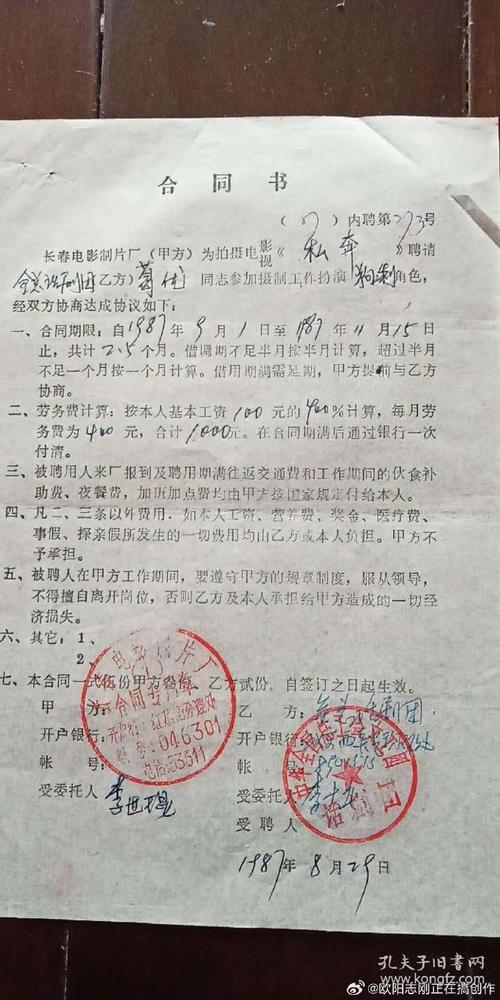 合同书
（87）内聘第273号
长春电影制片厂（甲方）为拍摄电影视《私奔》聘请
全总话剧团（乙方）葛优 同志参加摄制工作扮演 狗剩 角色，
经双方协商达成协议如下：
一、合同期限：自1987年9月1日至1987年11月15日
止，共计2.5个月。借调期不足半月按半月计算，超过半月
不足一个月按一个月计算。借用期满需延期，甲方提前与乙方
协商。
二、劳务费计算：按本人基本工资100元的400%计算，每月劳
务费为400元，合计1000元。在合同期满后通过银行一次
付清。
三、被聘用人来厂报到及聘用期满往返交通费和工作期间的伙食补
助费、夜餐费，加班加点费均由甲方按国家规定付给本人。
四、凡二、三条以外费用．如本人工资、营养费、奖金、医疗费、
事假、探亲假所发生的一切费用均由乙方或本人负担。甲方不
予承担。
五、被聘人在甲方工作期间，要遵守甲方的规章制度，服从领导，
不得擅自离开岗位，否则乙方及本人承担给甲方造成的一切经
济损失。
六、其它：1、
2、
七、本合同一式伍份甲方叁份，乙方贰份。自签订之日起生效。
甲 方：
乙 方：全总话剧团
开户银行：
开户银行：
帐 号：
帐 号：
受委托人 李世琨
受委托人
受聘人
电影制片厂
合同专用章
046301
电话：53311
话剧团
1987年8月29日
孔夫子旧书网
@欧阳志刚正在搞创作